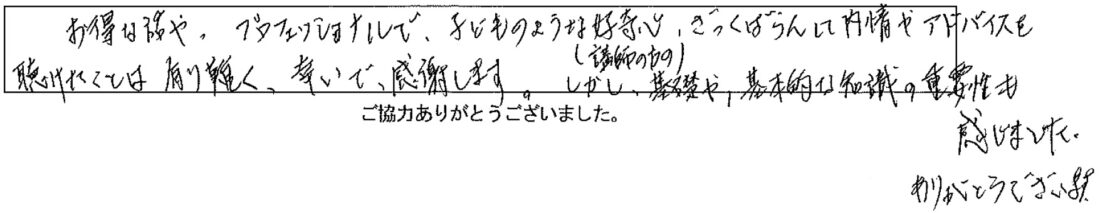 お得な話や、プロフェッショナルで、子どものような好奇心、ざっくばらんして内情やアドバイスを
(講師の方の)
聴けたことは有り難く、幸いで、感謝します。しかし、基礎や、基本的な知識の重要性も
ご協力ありがとうございました。
感じました。
ありがとうございます。